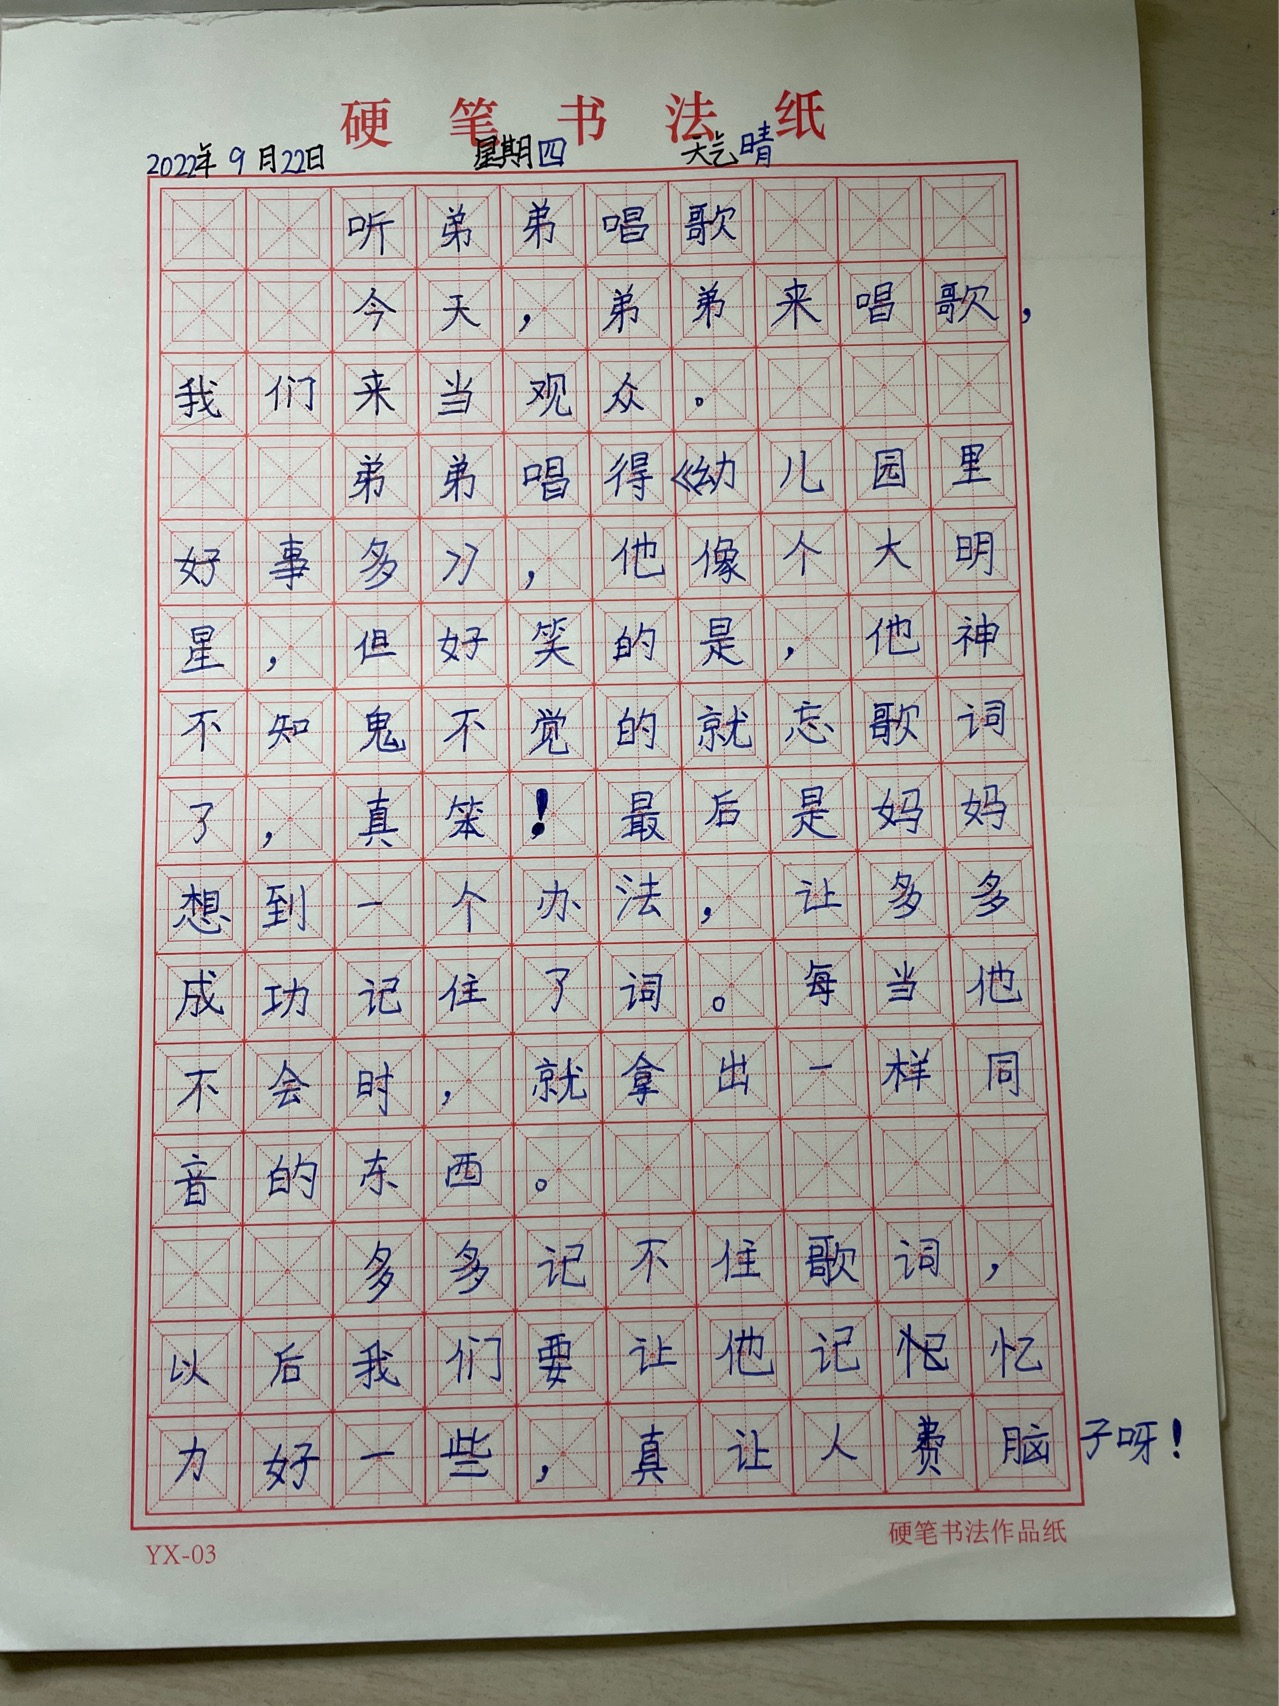 硬笔书法纸
2022年9月22日 星期四 天气晴
听弟弟唱歌
今天，弟弟来唱歌，
我们来当观众。
弟弟唱得《幼儿园里
好事多》，他像个大明
星，但好笑的是，他神
不知鬼不觉的就忘歌词
了，真笨！最后是妈妈
想到一个办法，让多多
成功记住了词。每当他
不会时，就拿出一样同
音的东西。
多多记不住歌词，
以后我们要让他记忆
力好一些，真让人费脑子呀！
硬笔书法作品纸
YX-03